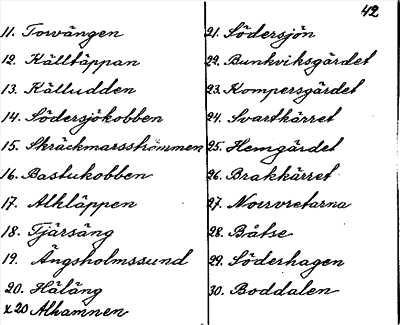 42
11. Torvängen
12. Källtäppan
13. Källudden
14. Södersjökobben
15. Skräckmarsströmmen
16. Bastukobben
17. Alkläppen
18. Tjärsäng
19. Ängsholmssund
20. Häläng
x20 Alhamnen
21. Södersjön
22. Bunkviksgärdet
23. Kompersgärdet
24. Svartkärret
25. Hemgärdet
26. Brakkärret
27. Norrvretarna
28. Båtse
29. Söderhagen
30. Boddalen